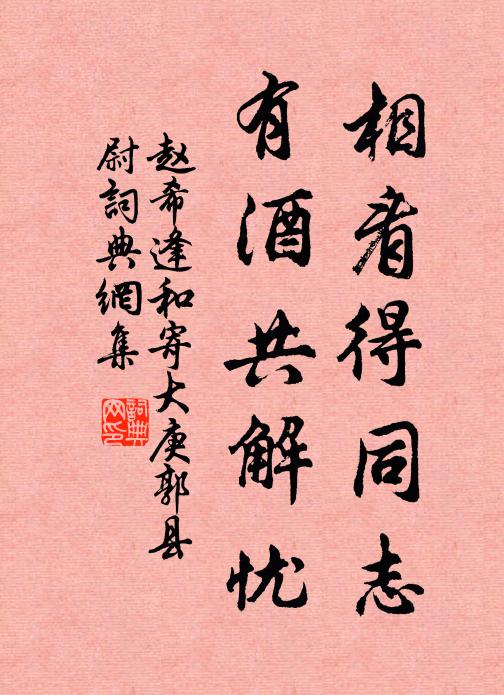 相看得同志
有酒共解忧
赵希逢和寄大庾郭县
尉詞典網集
詞典网印